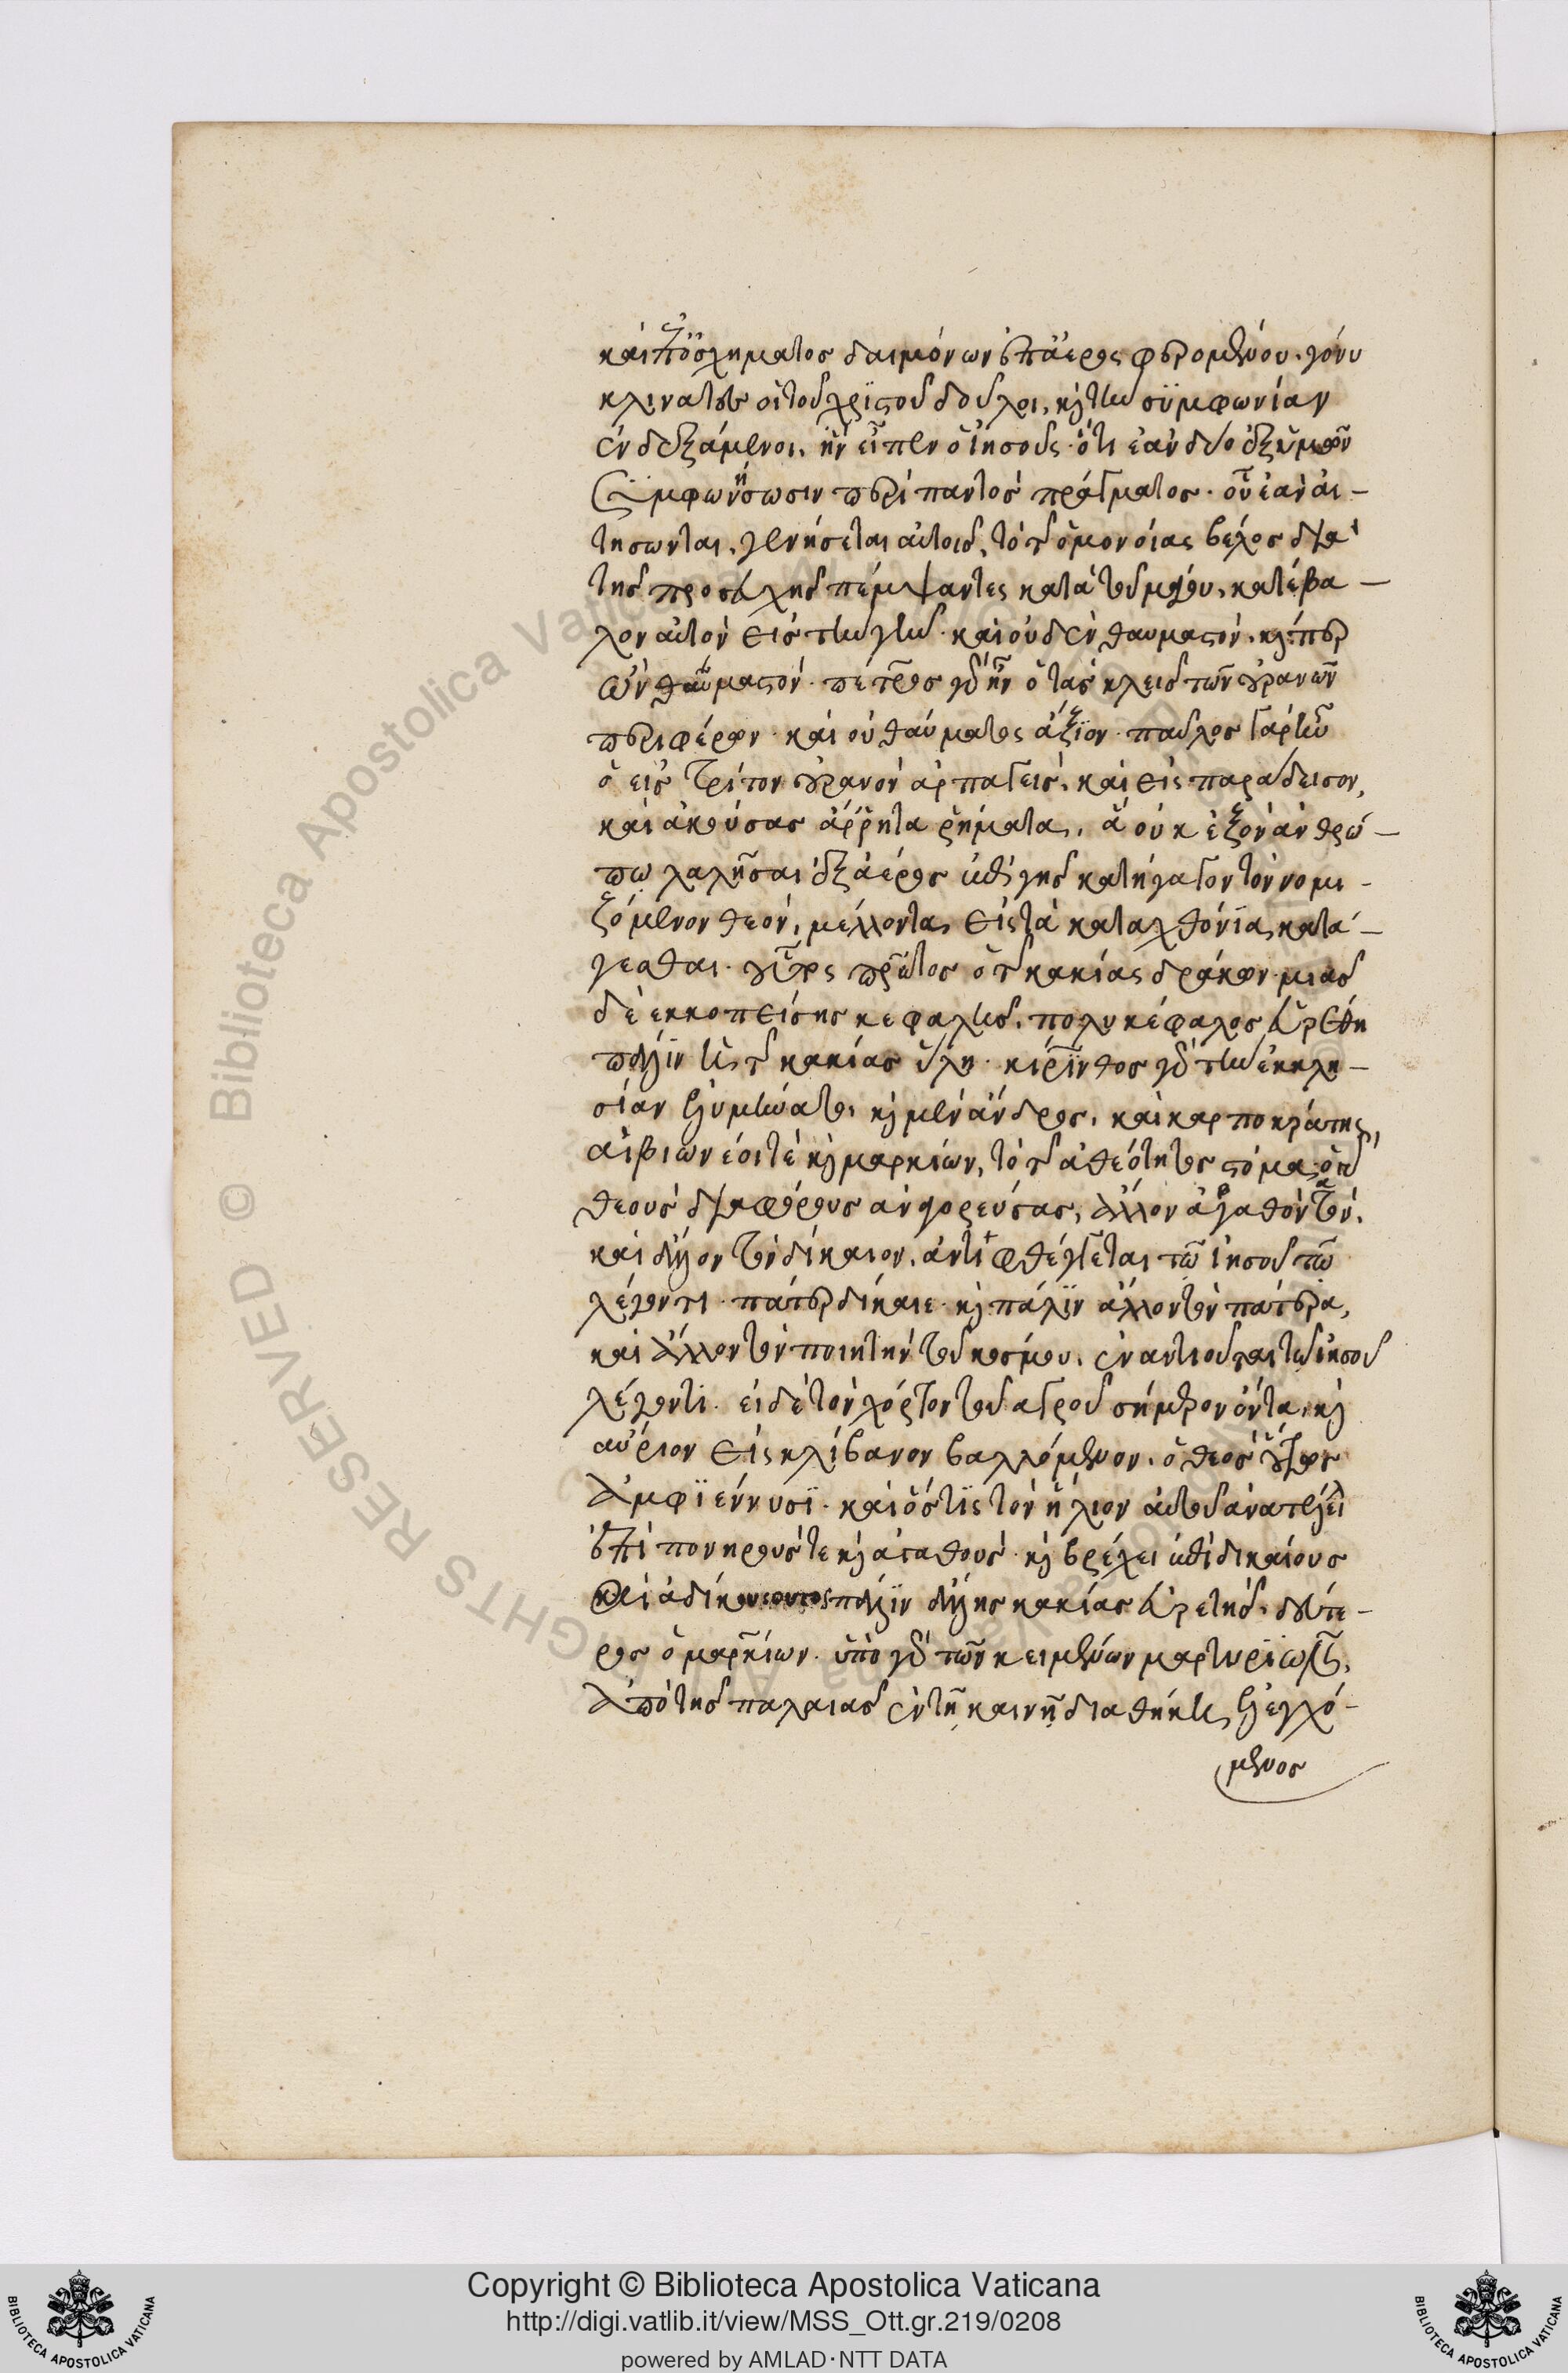 καὶ ἐπὶ ὀχήματος δαιμόνων ἐπ' ἀέρος φερομένου. γόνυ
κλίναντες οἱ τοῦ χριστοῦ δοῦλοι, καὶ τὴν συμφωνίαν
ἐνδεξάμενοι, ἣν εἶπεν ὁ ἰησοῦς· ὅτι ἐὰν δύο ἐξ ὑμῶν
Συμφωνήσωσιν περὶ παντὸς πράγματος· οὗ ἐὰν αἰ-
τήσωνται, γενήσεται αὐτοῖς, τὸ τῆς ὁμονοίας βέλος διὰ
τῆς προσευχῆς πέμψαντες κατὰ τοῦ μάγου, κατέβα-
λον αὐτὸν εἰς τὴν γῆν· καὶ οὐδὲν θαυμαστόν· καίπερ
ὢν θαυμαστόν· πέτρος γὰρ ἦν ὁ τὰς κλεῖς τῶν οὐρανῶν
περιφέρων· καὶ οὐ θαύματος ἄξιον· παῦλος γὰρ ἦν
ὁ εἰς τρίτον οὐρανὸν ἁρπαγεὶς, καὶ εἰς παράδεισον,
καὶ ἀκούσας ἄρρητα ῥήματα, ἃ οὐκ ἐξὸν ἀνθρώ-
πω λαλῆσαι ἐξ ἀέρος ἐπὶ γῆς κατήγαγον τὸν νομι-
ζόμενον θεόν, μέλλοντα εἰς τὰ καταχθόνια κατά-
γεσθαι· οὗτος πρῶτος ὁ τῆς κακίας δράκων· μιᾶς
δὲ ἐκκοπείσης κεφαλῆς, πολυκέφαλος εὑρέθη
πάλιν ἡ τῆς κακίας ὕλη· κήρινθος γὰρ τὴν ἐκκλη-
σίαν ἐλυμήνατο καὶ μένανδρος, καὶ καρποκράτης,
αἰβιωνέοι τὲ καὶ μαρκίων, τὸ τῆς ἀθεότητος στόμα, ὁ
θεοὺς διαφόρους ἀναγορεύσας, ἄλλον ἀγαθὸν τὸν,
καὶ ἄλλον τὸν δίκαιον, ἀντιφθέγγεται τῷ ἰησοῦ τῷ
λέγοντι· πάτερ δίκαιε· καὶ πάλιν ἄλλον τὸν πατέρα,
καὶ ἄλλον τὸν ποιητὴν τοῦ κόσμου, ἐναντιοῦται τῷ ἰησοῦ
λέγοντι· εἰ δὲ τὸν χόρτον τοῦ ἀγροῦ σήμερον ὄντα, καὶ
αὔριον εἰς κλίβανον βαλλόμενον, ὁ θεὸς οὕτως
ἀμφιέννυσι· καὶ ὅστις τὸν ἥλιον αὐτοῦ ἀνατέλλει
ἐπὶ πονηρούς τε καὶ ἀγαθούς· καὶ βρέχει ἐπὶ δικαίους
καὶ ἀδίκους πάλιν ἄλλης κακίας εὑρετὴς, δεύτε-
ρος ὁ μαρκίων· ὑπὸ γὰρ τῶν κειμένων μαρτυριῶν,
ἀπὸ τῆς παλαιᾶς ἐν τῇ καινῇ διαθήκῃ, ἐλεγχό-
μενος
Copyright © Biblioteca Apostolica Vaticana
http://digi.vatlib.it/view/MSS_Ott.gr.219/0208
powered by AMLAD·NTT DATA